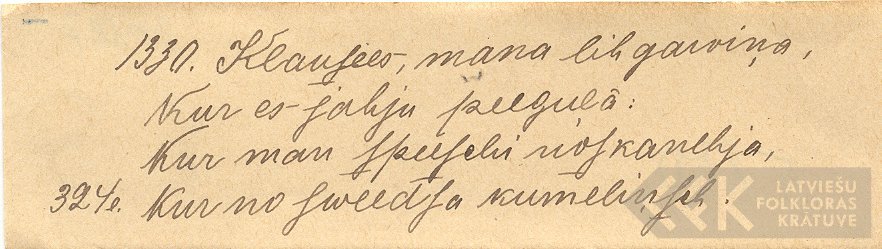 1330. Klausees, mana lihgawiņa,
Kur es jahju peegulâ:
Kur man speeschi noskanehja,
324e. Kur no sweedsa kumeliņsch.
LATVIEŠU
FOLKLORAS
KRĀTUVE